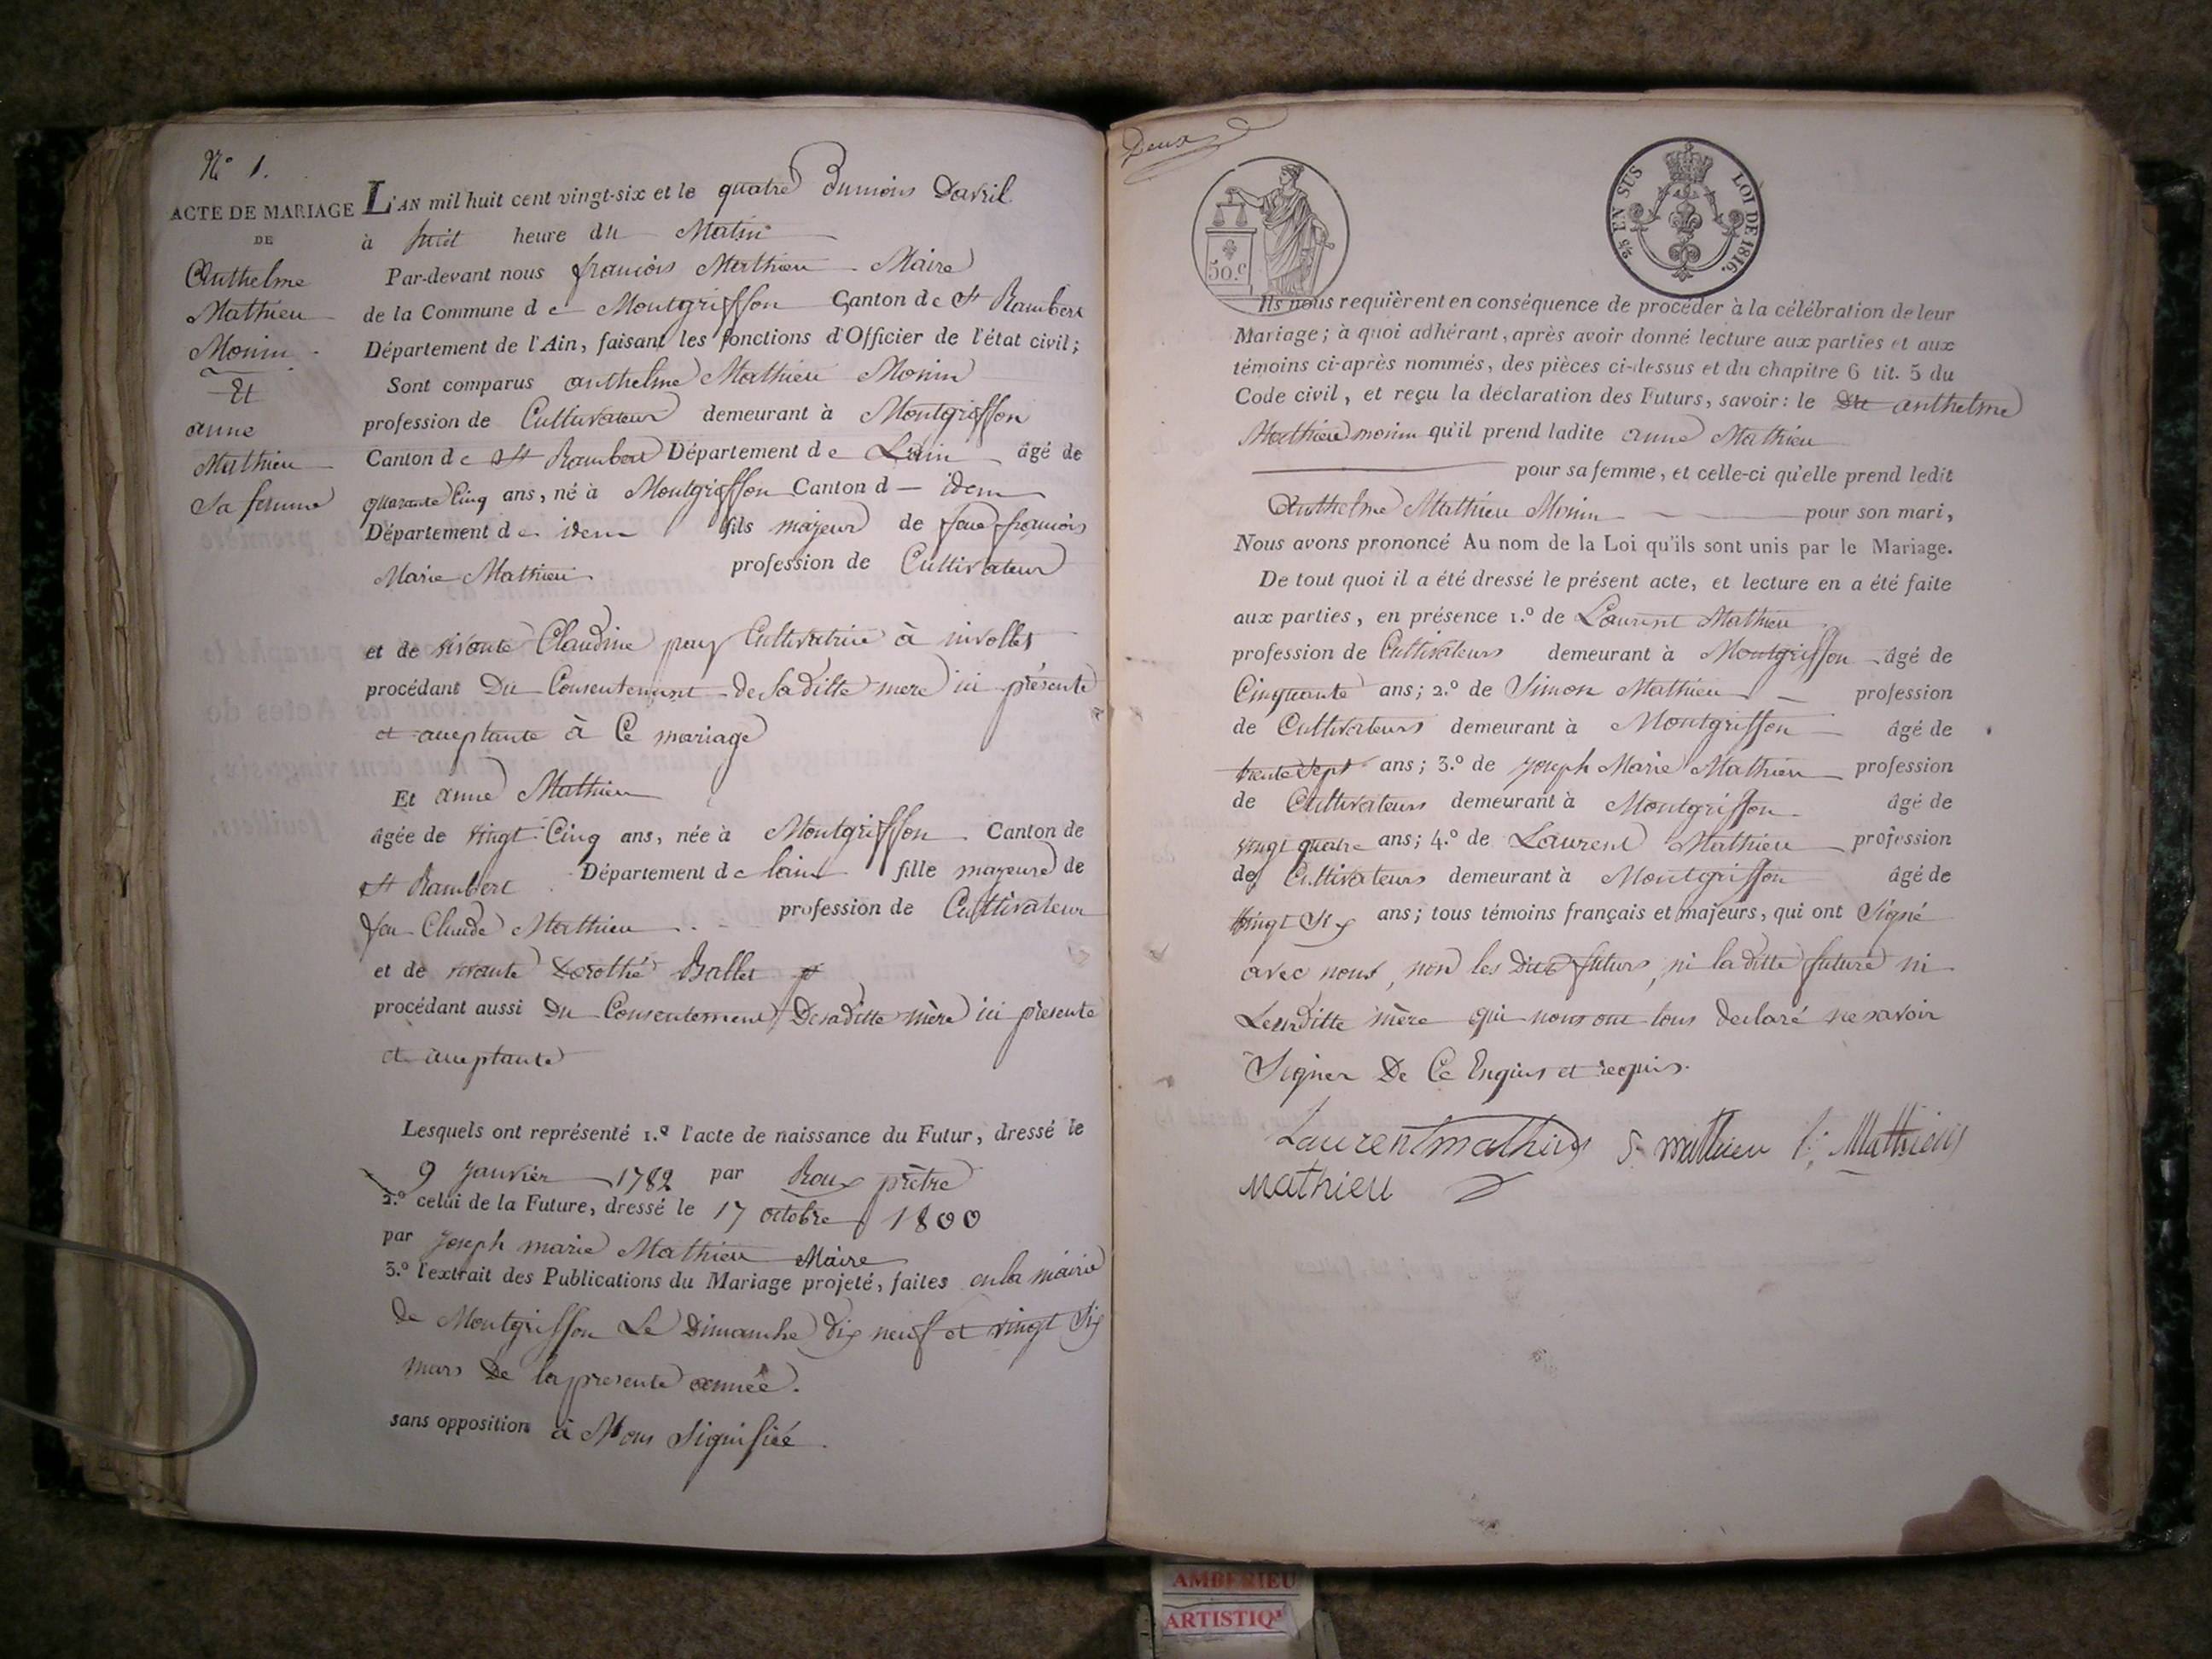 N.o 1.
ACTE DE MARIAGE
DE
Anthelme
Mathieu
Monin
Et
anne
Mathieu
Sa femme
L'AN mil huit cent vingt-six et le quatre Dumois Davril
à huit heure du Matin
Par-devant nous francois Mathieu Maire
de la Commune de Montgriffon Canton de St Rambert
Département de l'Ain, faisant les fonctions d'Officier de l'état civil;
Sont comparus anthelme Mathieu Monin
profession de Cultivateur demeurant à Montgriffon
Canton de St Rambert Département de Lain âgé de
quarante Cinq ans, né à Montgriffon Canton d idem
Département de idem fils majeur de feue francois
Marie Mathieu profession de Cultivateur
et de vivante Claudine Cultivatrice à nivollet
procédant Du Consentement de Saditte mere ici présente
et aceptante à Ce mariage
Et anne Mathieu
âgée de vingt Cinq ans, née à Montgriffon Canton de
St Rambert Département de lain fille majeure de
feu Claude Mathieu profession de Cultivateur
et de vivante Dorothé Ballet
procédant aussi Du Consentement Desaditte mère ici présente
et aceptante
Lesquels ont représenté 1.º l'acte de naissance du Futur, dressé le
9 Janvier 1782 par Roux prètre
2.º celui de la Future, dressé le 17 octobre 1800
par Joseph marie Mathieu Maire
3.º l'extrait des Publications du Mariage projeté, faites en la mairie
de Montgriffon Le Dimanche dix neuf et vingt Six
mars De la presente année.
sans opposition à Nous Signifiée
Deux
50.c
2/8 EN SUS LOI DE 1816.
Ils nous requièrent en conséquence de procéder à la célébration de leur
Mariage; à quoi adhérant, après avoir donné lecture aux parties et aux
témoins ci-après nommés, des pièces ci-dessus et du chapitre 6 tit. 5 du
Code civil, et reçu la déclaration des Futurs, savoir: le Dit anthelme
Mathieu monin qu'il prend ladite anne Mathieu
pour sa femme, et celle-ci qu'elle prend ledit
Anthelme Mathieu Monin pour son mari,
Nous avons prononcé Au nom de la Loi qu'ils sont unis par le Mariage.
De tout quoi il a été dressé le présent acte, et lecture en a été faite
aux parties, en présence 1.º de Laurent Mathieu
profession de Cultivateurs demeurant à Montgriffon âgé de
Cinquante ans; 2.º de Simon Mathieu profession
de Cultivateurs demeurant à Montgriffon âgé de
trente Sept ans; 3.º de Joseph Marie Mathieu profession
de Cultivateurs demeurant à Montgriffon âgé de
vingt quatre ans; 4.º de Laurent Mathieu profession
de Cultivateurs demeurant à Montgriffon âgé de
vingt Six ans; tous témoins français et majeurs, qui ont Signé
avec nous, non les Dits futurs, ni la ditte future ni
Leurditte mère qui nous ont tous declaré ne savoir
Signer De Ce Enquis et requis.
Laurent mathieu S. mathieu l. Mathieu
Mathieu
AMBERIEU
ARTISTIQ